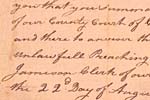 you that you summon
of our County Court of C
and there to answer the
unlawfull Preaching
Jameson Clerk of our
the 22 Day of Augus